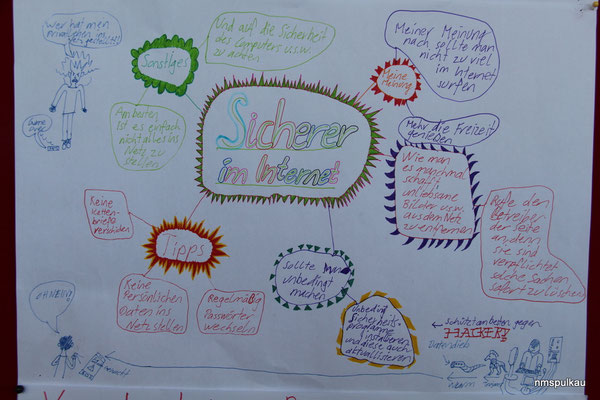 Wer hat mein
Sonstiges
Und auf die Sicherheit
des Computers u.s.w.
zu achten
Meiner Meinung
nach sollte man
nicht zu viel
im Internet
surfen
Meine
Meinung
Am besten
Ist es einfach
nicht alles ins
Netz zu
stellen
Sicherer
im Internet
Mehr die Freizeit
genießen
Wie man
es manchmal
schafft
unliebsame
Bilder u.s.w.
aus dem Netz
zu entfernen
Rufe den
Betreiber
der Seite
an, denn
sie sind
verpflichtet
solche Sachen
sofort zu löschen
Keine
Ketten-
briefe
verschicken
Tipps
Keine
Persönlichen
Daten ins
Netz stellen
Regelmäßig
Passwörter
wechseln
Sollte
unbedingt
machen
Unbedingt
Sicherheits-
programme
installieren
und diese auch
aktuallisieren
OH NEIN!
schützt am besten gegen
HACKER
Datendieb
nmspulkau